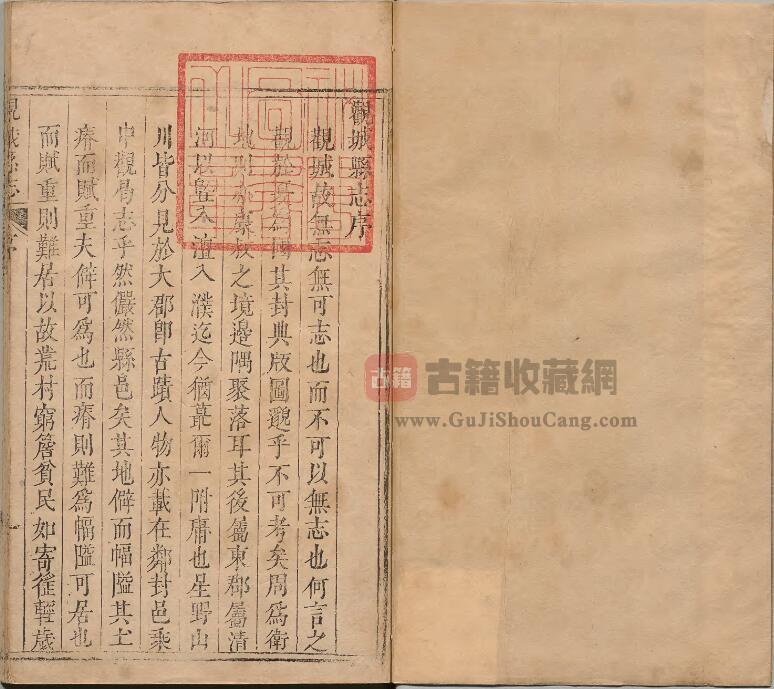 觀城縣志序
觀城故無志無可志也而不可以無志也何言之
觀於夏為國其封典版圖邈乎不可考矣周為衛
地則在之境邊隅聚落耳其後舊東郡屬清
河以暨入澶入濮迄今猶蕞爾一附庸也星野山
川皆分見於大郡卽古蹟人物亦載在鄰封邑乘
中觀曷志乎然儼然縣邑矣其地僻而幅隘其土
瘠而賦重夫僻可為也而瘠則難為幅隘可居也
而賦重則難居以故荒村窮簷貧民如寄徭輕歲
觀城縣志
序
古籍
古籍收藏網
www.GuJiShouCang.com